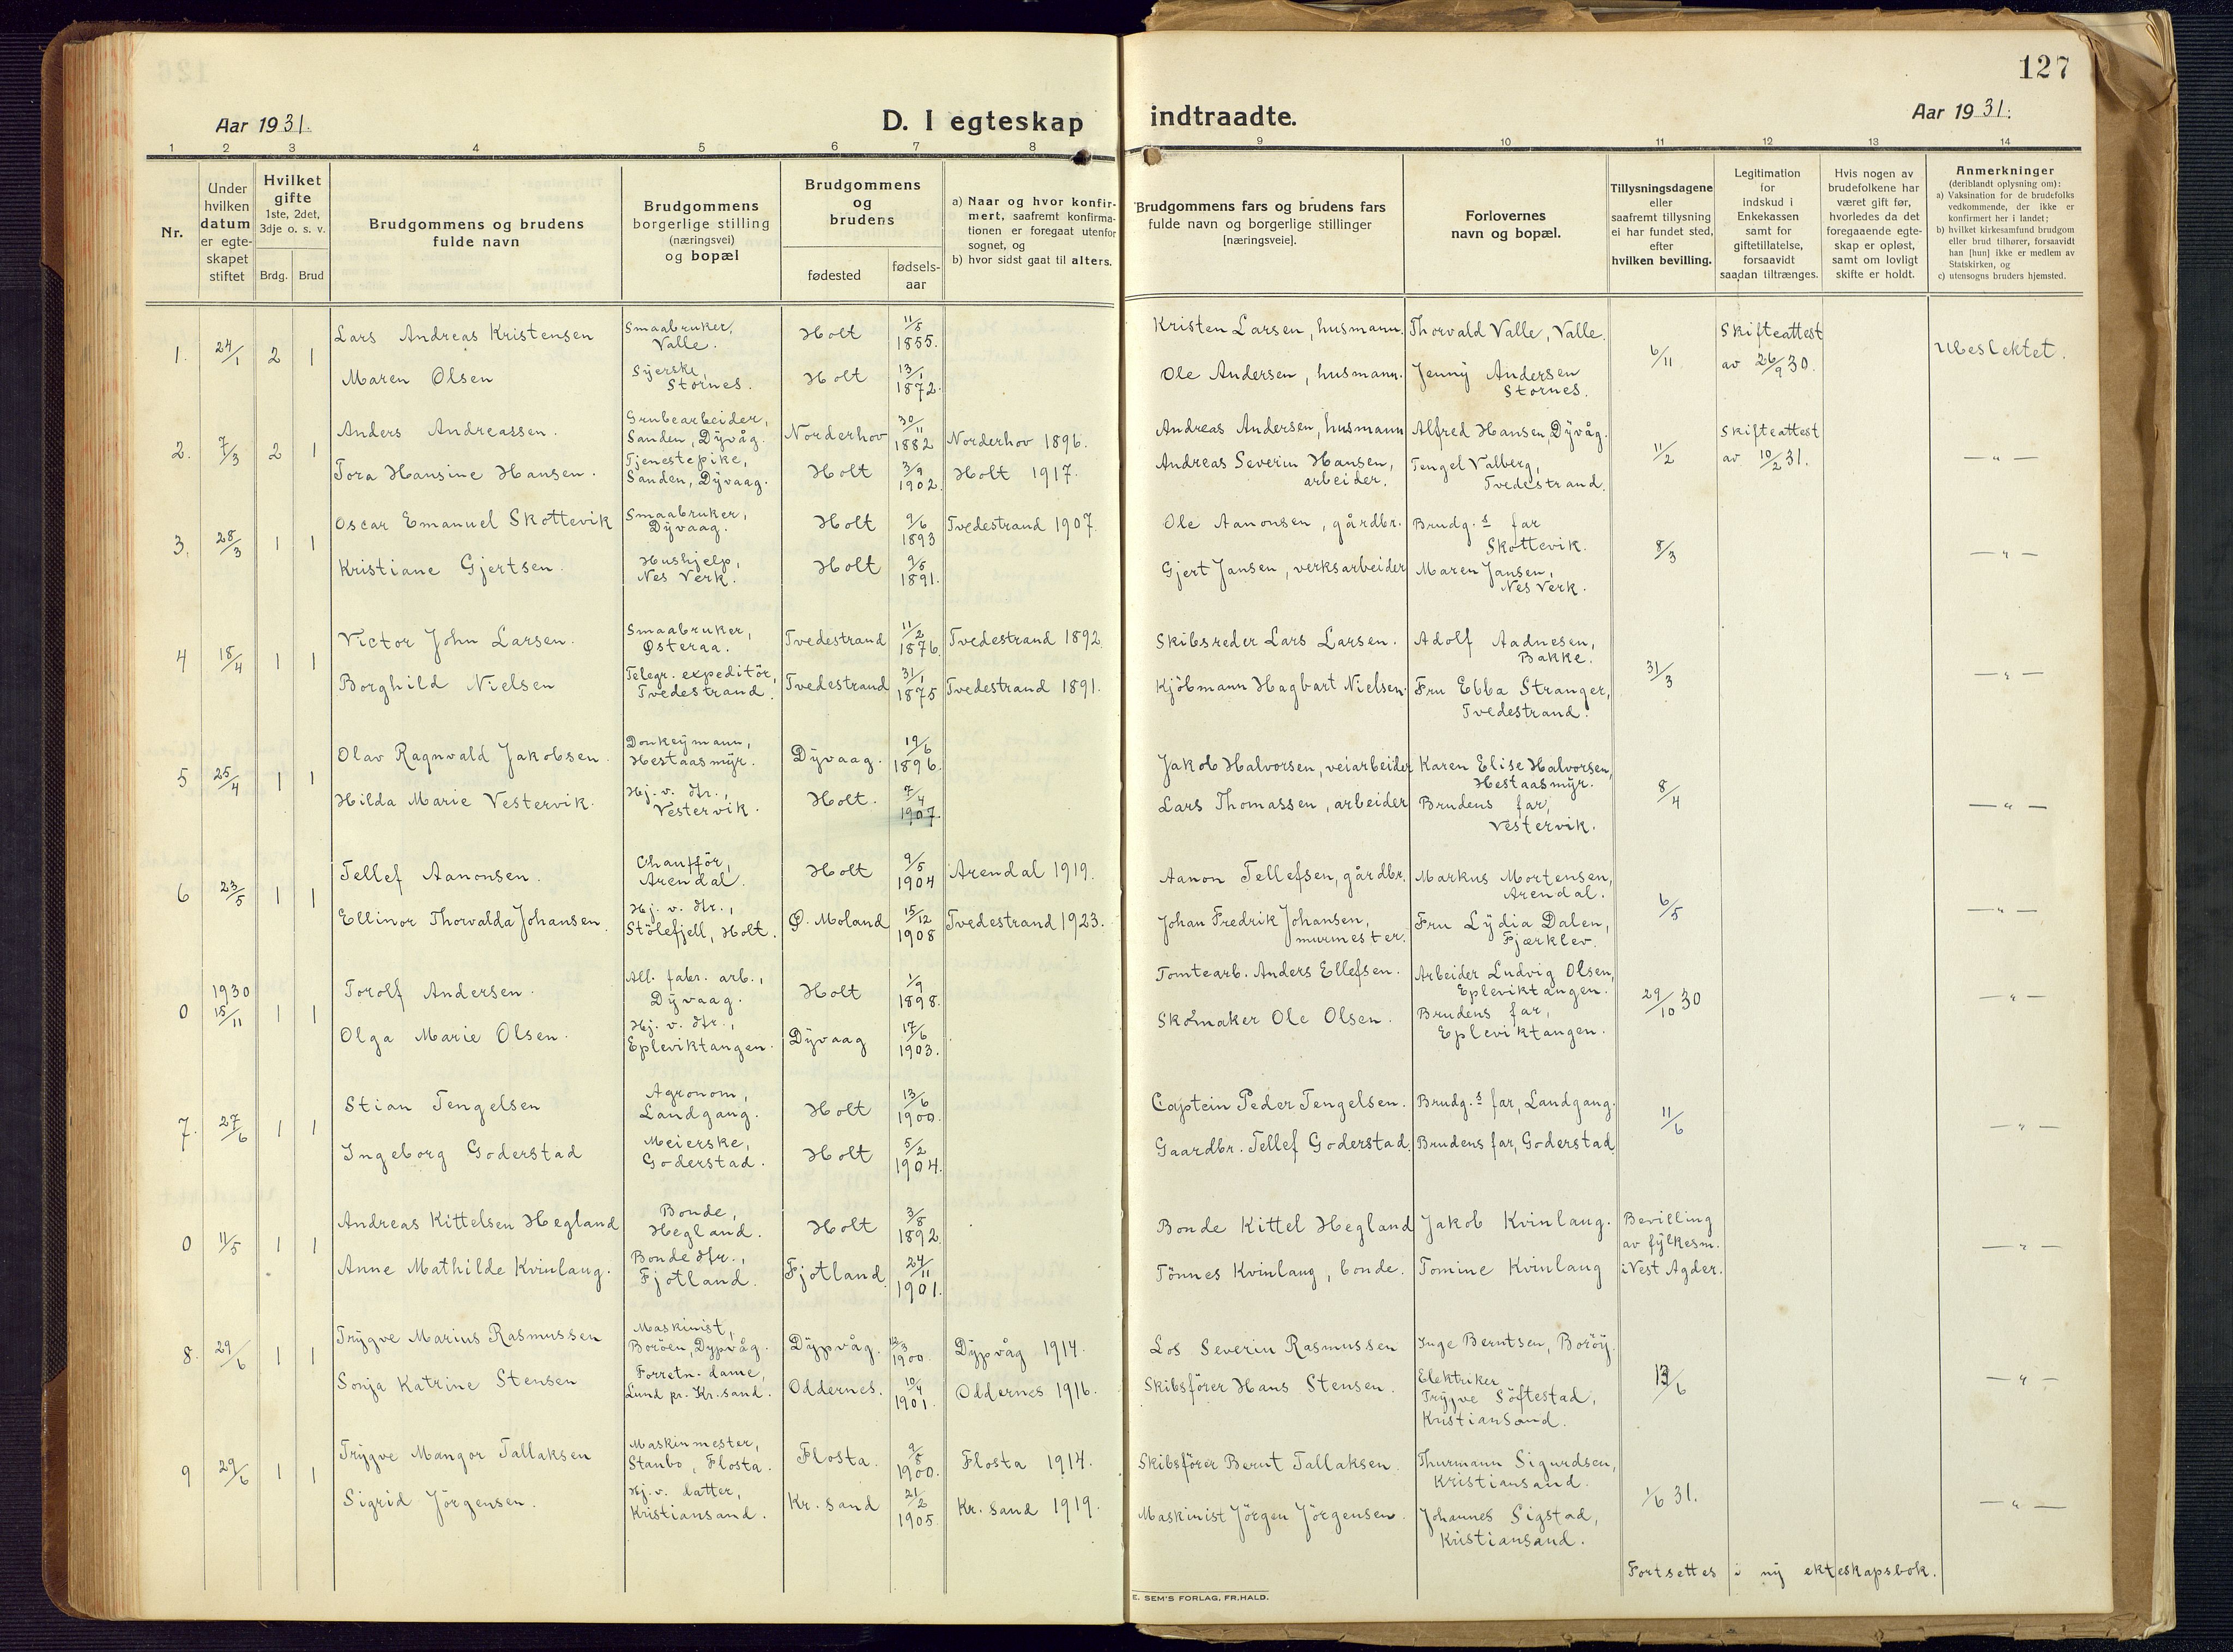 127
Aar 1931.
D. I egteskap indtraadte.
Aar 1931.
1 2 3 4 5 6 7 8 9 10 11 12 13 14
Nr.
Under
hvilken
datum
er egte-
skapet
stiftet
Hvilket
gifte
1ste, 2det,
3dje o. s. v.
Brdg. Brud
Brudgommens og brudens
fulde navn
Brudgommens
borgerlige stilling
(næringsvei)
og bopæl
Brudgommens
og
brudens
fødested
fødsels-
aar
a) Naar og hvor konfir-
mert, saafremt konfirma-
tionen er foregaat utenfor
sognet, og
b) hvor sidst gaat til alters.
Brudgommens fars og brudens fars
fulde navn og borgerlige stillinger
[næringsveie].
Forlovernes
navn og bopæl.
Tillysningsdagene
eller
saafremt tillysning
ei har fundet sted,
efter
hvilken bevilling.
Legitimation
for
indskud i
Enkekassen
samt for
giftetillatelse,
forsaavidt
saadan tiltrænges.
Hvis nogen av
brudefolkene har
været gift før,
hvorledes da det
foregaaende egte-
skap er opløst,
samt om lovligt
skifte er holdt.
Anmerkninger
(deriblandt oplysning om):
a) Vaksination for de brudefolks
vedkommende, der ikke er
konfirmert her i landet;
b) hvilket kirkesamfund brudgom
eller brud tilhører, forsaavidt
han [hun] ikke er medlem av
Statskirken, og
c) utensogns bruders hjemsted.
1. 24/1 2 1
Lars Andreas Kristensen Smaabruker, Valle. Holt 11/5 1855. Kristen Larsen, husmann. Thorvald Valle, Valle.
Maren Olsen Syerske, Stornes. Holt 13/1 1872. Ole Andersen, husmann. Jenny Andersen Stornes.
6/11 Skifteattest av 26/9 30. Ubeslektet.
2. 7/3 2 1
Anders Andreassen. Grubearbeider, Sanden, Dÿvåg. Norderhov 30/11 1882 Norderhov 1896. Andreas Andersen, husmann Alfred Hansen, Dÿvåg.
Tora Hansine Hansen. Tjenestepike, Sanden, Dÿvaag. Holt 3/9 1902. Holt 1917. Andreas Severin Hansen, arbeider. Tengel Valberg, Tvedestrand.
11/2 Skifteattest av 10/2 31. — " —
3. 28/3 1 1
Oscar Emanuel Skottevik Smaabruker, Dÿvaag. Holt 9/6 1893 Tvedestrand 1907. Ole Aanonsen, gårdbr. Brudg.s far Skottevik.
Kristiane Gjertsen. Hushjelp, Nes Verk. Holt 9/5 1891. Gjert Jansen, verksarbeider Maren Jansen, Nes Verk.
8/3 — " —
4 18/4 1 1
Victor John Larsen. Smaabruker, Østeraa. Tvedestrand 11/2 1876. Tvedestrand 1892. Skibsreder Lars Larsen. Adolf Aadnesen, Bakke.
Borghild Nielsen Telegr. expeditör, Tvedestrand. Tvedestrand 31/1 1875 Tvedestrand 1891. Kjöbmann Hagbart Nielsen. Fru Ebba Stranger, Tvedestrand.
31/3 — " —
5 25/4 1 1
Olav Ragnvald Jakobsen. Donkeÿmann, Hestaasmÿr. Dÿvaag. 19/6 1896. Jakob Halvorsen, veiarbeider Karen Elise Halvorsen, Hestaasmÿr.
Hilda Marie Vestervik. Hj. v. dtr., Vestervik. Holt. 7/4 1907. Lars Thomassen, arbeider Brudens far, Vestervik.
8/4 — " —
6 23/5 1 1
Tellef Aanonsen. Chaufför, Arendal. Holt 9/5 1904 Arendal 1919. Aanon Tellefsen, gårdbr. Markus Mortensen, Arendal.
Ellinor Thorvalda Johansen. Hj. v. dtr., Stölefjell, Holt. Ø. Moland 15/12 1908 Tvedestrand 1923. Johan Fredrik Johansen, murmester. Fru Lÿdia Dalen, Fjærklev.
6/5 — " —
0 1930 15/11 1 1
Torolf Andersen. All. fabr. arb., Dÿvaag. Holt 1/9 1898. Tomtearb. Anders Ellefsen. Arbeider Ludvig Olsen, Epleviktangen.
Olga Marie Olsen. Hj. v. dtr., Epleviktangen. Dÿvaag 17/6 1903. Skomaker Ole Olsen. Brudens far, Epleviktangen.
29/10 30 — " —
7. 27/6 1 1
Stian Tengelsen Agronom, Landgang. Holt 13/6 1900. Captein Peder Tengelsen. Brudg.s far, Landgang.
Ingeborg Goderstad Meierske, Goderstad. Holt 5/2 1904. Gaardbr. Tellef Goderstad. Brudens far, Goderstad
11/6 — " —
0 11/5 1 1
Andreas Kittelsen Hegland Bonde, Hegland. Holt 3/8 1892. Bonde Kittel Hegland Jakob Kvinlaug.
Anne Mathilde Kvinlaug. Bonde dtr., Fjotland. Fjotland. 24/11 1901. Tönnes Kvinlaug, bonde. Tomine Kvinlaug
Bevilling av fÿlkesm. i Vest Agder. — " —
8. 29/6 1 1
Trÿgve Marius Rasmussen Maskinist, Boröen, Dypvåg. Dÿpvåg. 13/3 1900. Dÿpvåg 1914. Los Severin Rasmussen Inge Berntsen, Boröÿ.
Sonja Katrine Stensen Forretn. dame, Lund pr. Kr.sand. Oddernes. 10/4 1901. Oddernes 1916. Skibsförer Hans Stensen. Elektriker Trÿgve Söftestad, Kristiansand.
13/6 — " —
9 29/6 1 1
Trÿgve Mangor Tallaksen Maskinmester, Staubo, Flosta. Flosta. 9/5 1900. Flosta 1914. Skibsförer Bernt Tallaksen. Thurmann Sigurdsen, Kristiansand.
Sigrid Jörgensen. Hj. v. datter, Kristiansand. Kr. sand 21/2 1905 Kr. sand 1919. Maskinist Jörgen Jörgensen. Johannes Sigstad, Kristiansand.
1/6 31. — " —
Fortsettes i nÿ ekteskapsbok.
E. SEM'S FORLAG, FR.HALD.